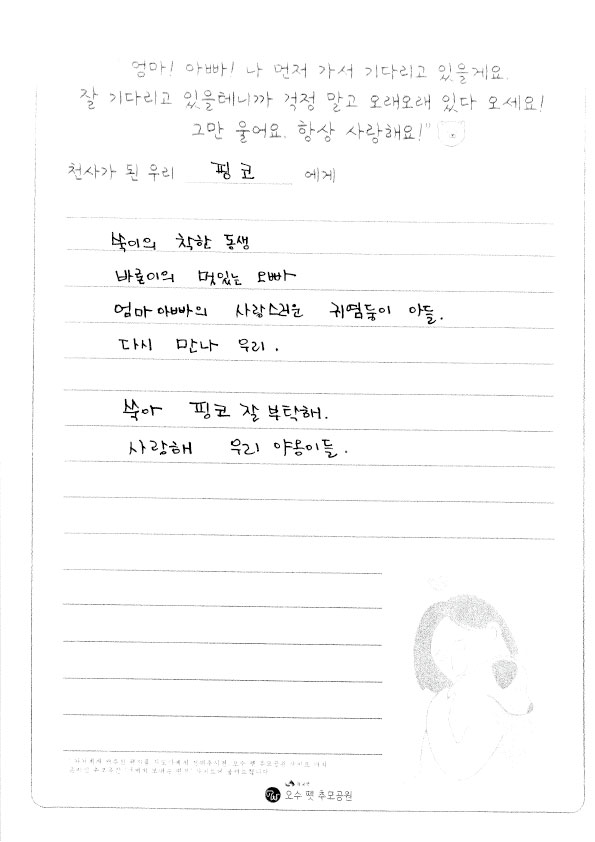 엄마! 아빠! 나 먼저 가서 기다리고 있을게요.
잘 기다리고 있을테니까 걱정 말고 오래오래 있다 오세요!
그만 울어요. 항상 사랑해요!"
천사가 된 우리 핑코 에게
쑥이의 착한 동생
바로이의 멋있는 오빠
엄마 아빠의 사랑스러운 귀염둥이 아들.
다시 만나 우리.
쑥아 핑코 잘 부탁해.
사랑해 우리 야옹이들.
오수 펫 추모공원